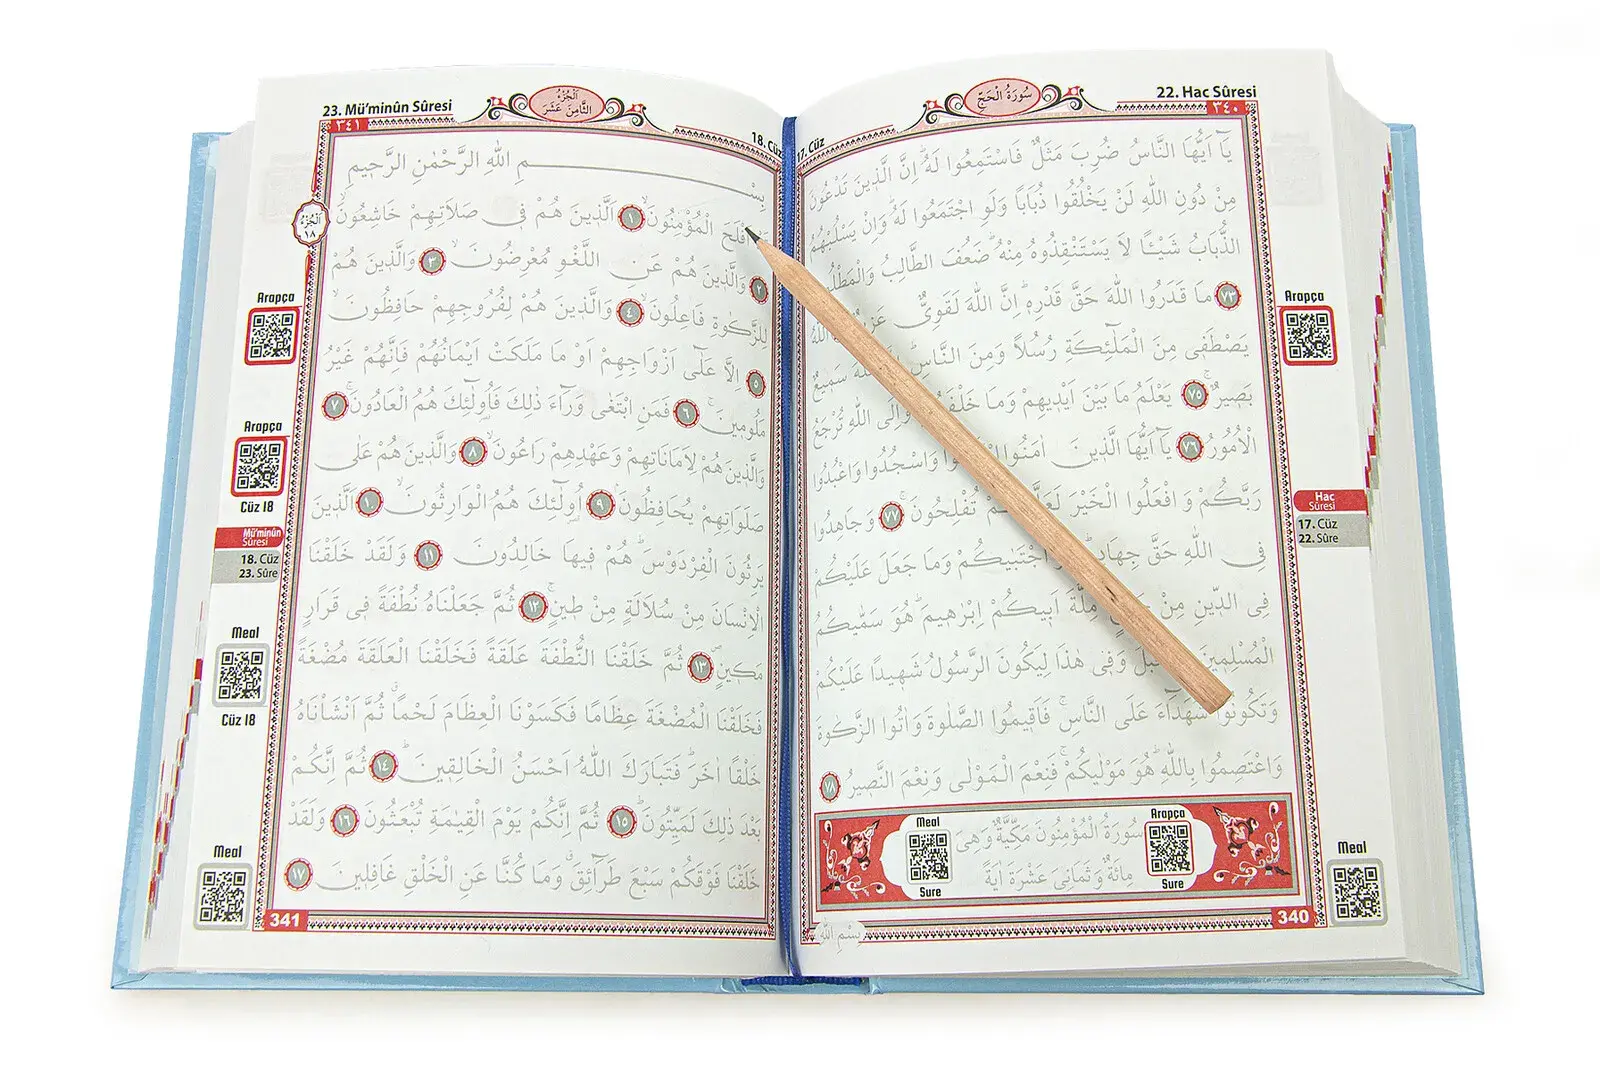 22. Hac Sûresi
٣٤٠
سُورَةُ الْحَجِّ
17. Cüz
يَٓا اَيُّهَا النَّاسُ ضُرِبَ مَثَلٌ فَاسْتَمِعُوا لَهُۜ اِنَّ الَّذ۪ينَ تَدْعُونَ
مِنْ دُونِ اللّٰهِ لَنْ يَخْلُقُوا ذُبَابًا وَلَوِ اجْتَمَعُوا لَهُۜ وَاِنْ يَسْلُبْهُمُ
الذُّبَابُ شَيْـًٔا لَا يَسْتَنْقِذُوهُ مِنْهُۜ ضَعُفَ الطَّالِبُ
٧٣ مَا قَدَرُوا اللّٰهَ حَقَّ قَدْرِه۪ۜ اِنَّ اللّٰهَ لَقَوِيٌّ اَللّٰهُ
يَصْطَف۪ي مِنَ الْمَلٰٓئِكَةِ رُسُلًا وَمِنَ النَّاسِۜ اللّٰهَ سَم۪يعٌ
بَص۪يرٌۚ ٧٥ يَعْلَمُ مَا بَيْنَ اَيْد۪يهِمْ وَمَا وَاِلَى اللّٰهِ تُرْجَعُ
الْاُمُورُ ٧٦ يَٓا اَيُّهَا الَّذ۪ينَ اٰمَنُوا وَاسْجُدُوا وَاعْبُدُوا
رَبَّكُمْ وَافْعَلُوا الْخَيْرَ تُفْلِحُونَۚ ٧٧ وَجَاهِدُوا
فِي اللّٰهِ حَقَّ اجْتَبٰيكُمْ وَمَا جَعَلَ عَلَيْكُمْ
فِي الدّ۪ينِ مِنْ مِلَّةَ اَب۪يكُمْ اِبْرٰه۪يمَۜ هُوَ سَمّٰيكُمُ
الْمُسْلِم۪ينَ وَف۪ي هٰذَا لِيَكُونَ الرَّسُولُ شَه۪يدًا عَلَيْكُمْ
وَتَكُونُوا شُهَدَٓاءَ عَلَى النَّاسِۚ فَاَق۪يمُوا الصَّلٰوةَ وَاٰتُوا الزَّكٰوةَ
وَاعْتَصِمُوا بِاللّٰهِۜ هُوَ مَوْلٰيكُمْۚ فَنِعْمَ الْمَوْلٰى وَنِعْمَ النَّص۪يرُ ٧٨
سُورَةُ الْمُؤْمِنُونَ مَكِّيَّةٌ وَهِيَ
مِائَةٌ وَثَمَانِيَ عَشْرَةَ اٰيَةً
Arapça
Sure
Meal
Sure
340
بِسْمِ اللّٰهِ
Arapça
Hac
Sûresi
17. Cüz
22. Sûre
Meal
23. Mü'minûn Sûresi
٣٤١
اَلْجُزْءُ
الثَّامِنَ عَشَرَ
18. Cüz
بِسْمِ اللّٰهِ الرَّحْمٰنِ الرَّح۪يمِ
اَفْلَحَ الْمُؤْمِنُونَۙ ١ اَلَّذ۪ينَ هُمْ ف۪ي صَلَاتِهِمْ خَاشِعُونَۙ
٢ وَالَّذ۪ينَ هُمْ عَنِ اللَّغْوِ مُعْرِضُونَۙ ٣ وَالَّذ۪ينَ هُمْ
لِلزَّكٰوةِ فَاعِلُونَۙ ٤ وَالَّذ۪ينَ هُمْ لِفُرُوجِهِمْ حَافِظُونَۙ
٥ اِلَّا عَلٰٓى اَزْوَاجِهِمْ اَوْ مَا مَلَكَتْ اَيْمَانُهُمْ فَاِنَّهُمْ غَيْرُ
مَلُوم۪ينَۚ ٦ فَمَنِ ابْتَغٰى وَرَٓاءَ ذٰلِكَ فَاُو۬لٰٓئِكَ هُمُ الْعَادُونَۚ ٧
وَالَّذ۪ينَ هُمْ لِاَمَانَاتِهِمْ وَعَهْدِهِمْ رَاعُونَۙ ٨ وَالَّذ۪ينَ هُمْ عَلٰى
صَلَوَاتِهِمْ يُحَافِظُونَۢ ٩ اُو۬لٰٓئِكَ هُمُ الْوَارِثُونَۙ ١٠ اَلَّذ۪ينَ
يَرِثُونَ الْفِرْدَوْسَۜ هُمْ ف۪يهَا خَالِدُونَ ١١ وَلَقَدْ خَلَقْنَا
الْاِنْسَانَ مِنْ سُلَالَةٍ مِنْ ط۪ينٍۚ ١٢ ثُمَّ جَعَلْنَاهُ نُطْفَةً ف۪ي قَرَارٍ
مَك۪ينٍۖ ١٣ ثُمَّ خَلَقْنَا النُّطْفَةَ عَلَقَةً فَخَلَقْنَا الْعَلَقَةَ مُضْغَةً
فَخَلَقْنَا الْمُضْغَةَ عِظَامًا فَكَسَوْنَا الْعِظَامَ لَحْمًا ثُمَّ اَنْشَأْنَاهُ
خَلْقًا اٰخَرَۜ فَتَبَارَكَ اللّٰهُ اَحْسَنُ الْخَالِق۪ينَۜ ١٤ ثُمَّ اِنَّكُمْ
بَعْدَ ذٰلِكَ لَمَيِّتُونَۜ ١٥ ثُمَّ اِنَّكُمْ يَوْمَ الْقِيٰمَةِ تُبْعَثُونَ ١٦ وَلَقَدْ
خَلَقْنَا فَوْقَكُمْ سَبْعَ طَرَٓائِقَۗ وَمَا كُنَّا عَنِ الْخَلْقِ غَافِل۪ينَ ١٧
341
اَلْجُزْءُ
١٨
Arapça
Arapça
Cüz 18
Mü'minûn
Sûresi
18. Cüz
23. Sûre
Meal
Cüz 18
Meal